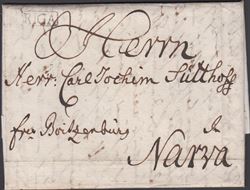 RIGA
Herrn
Herr: Carl Jochim Sutthoff
fro Boitzenburg
à
Narva